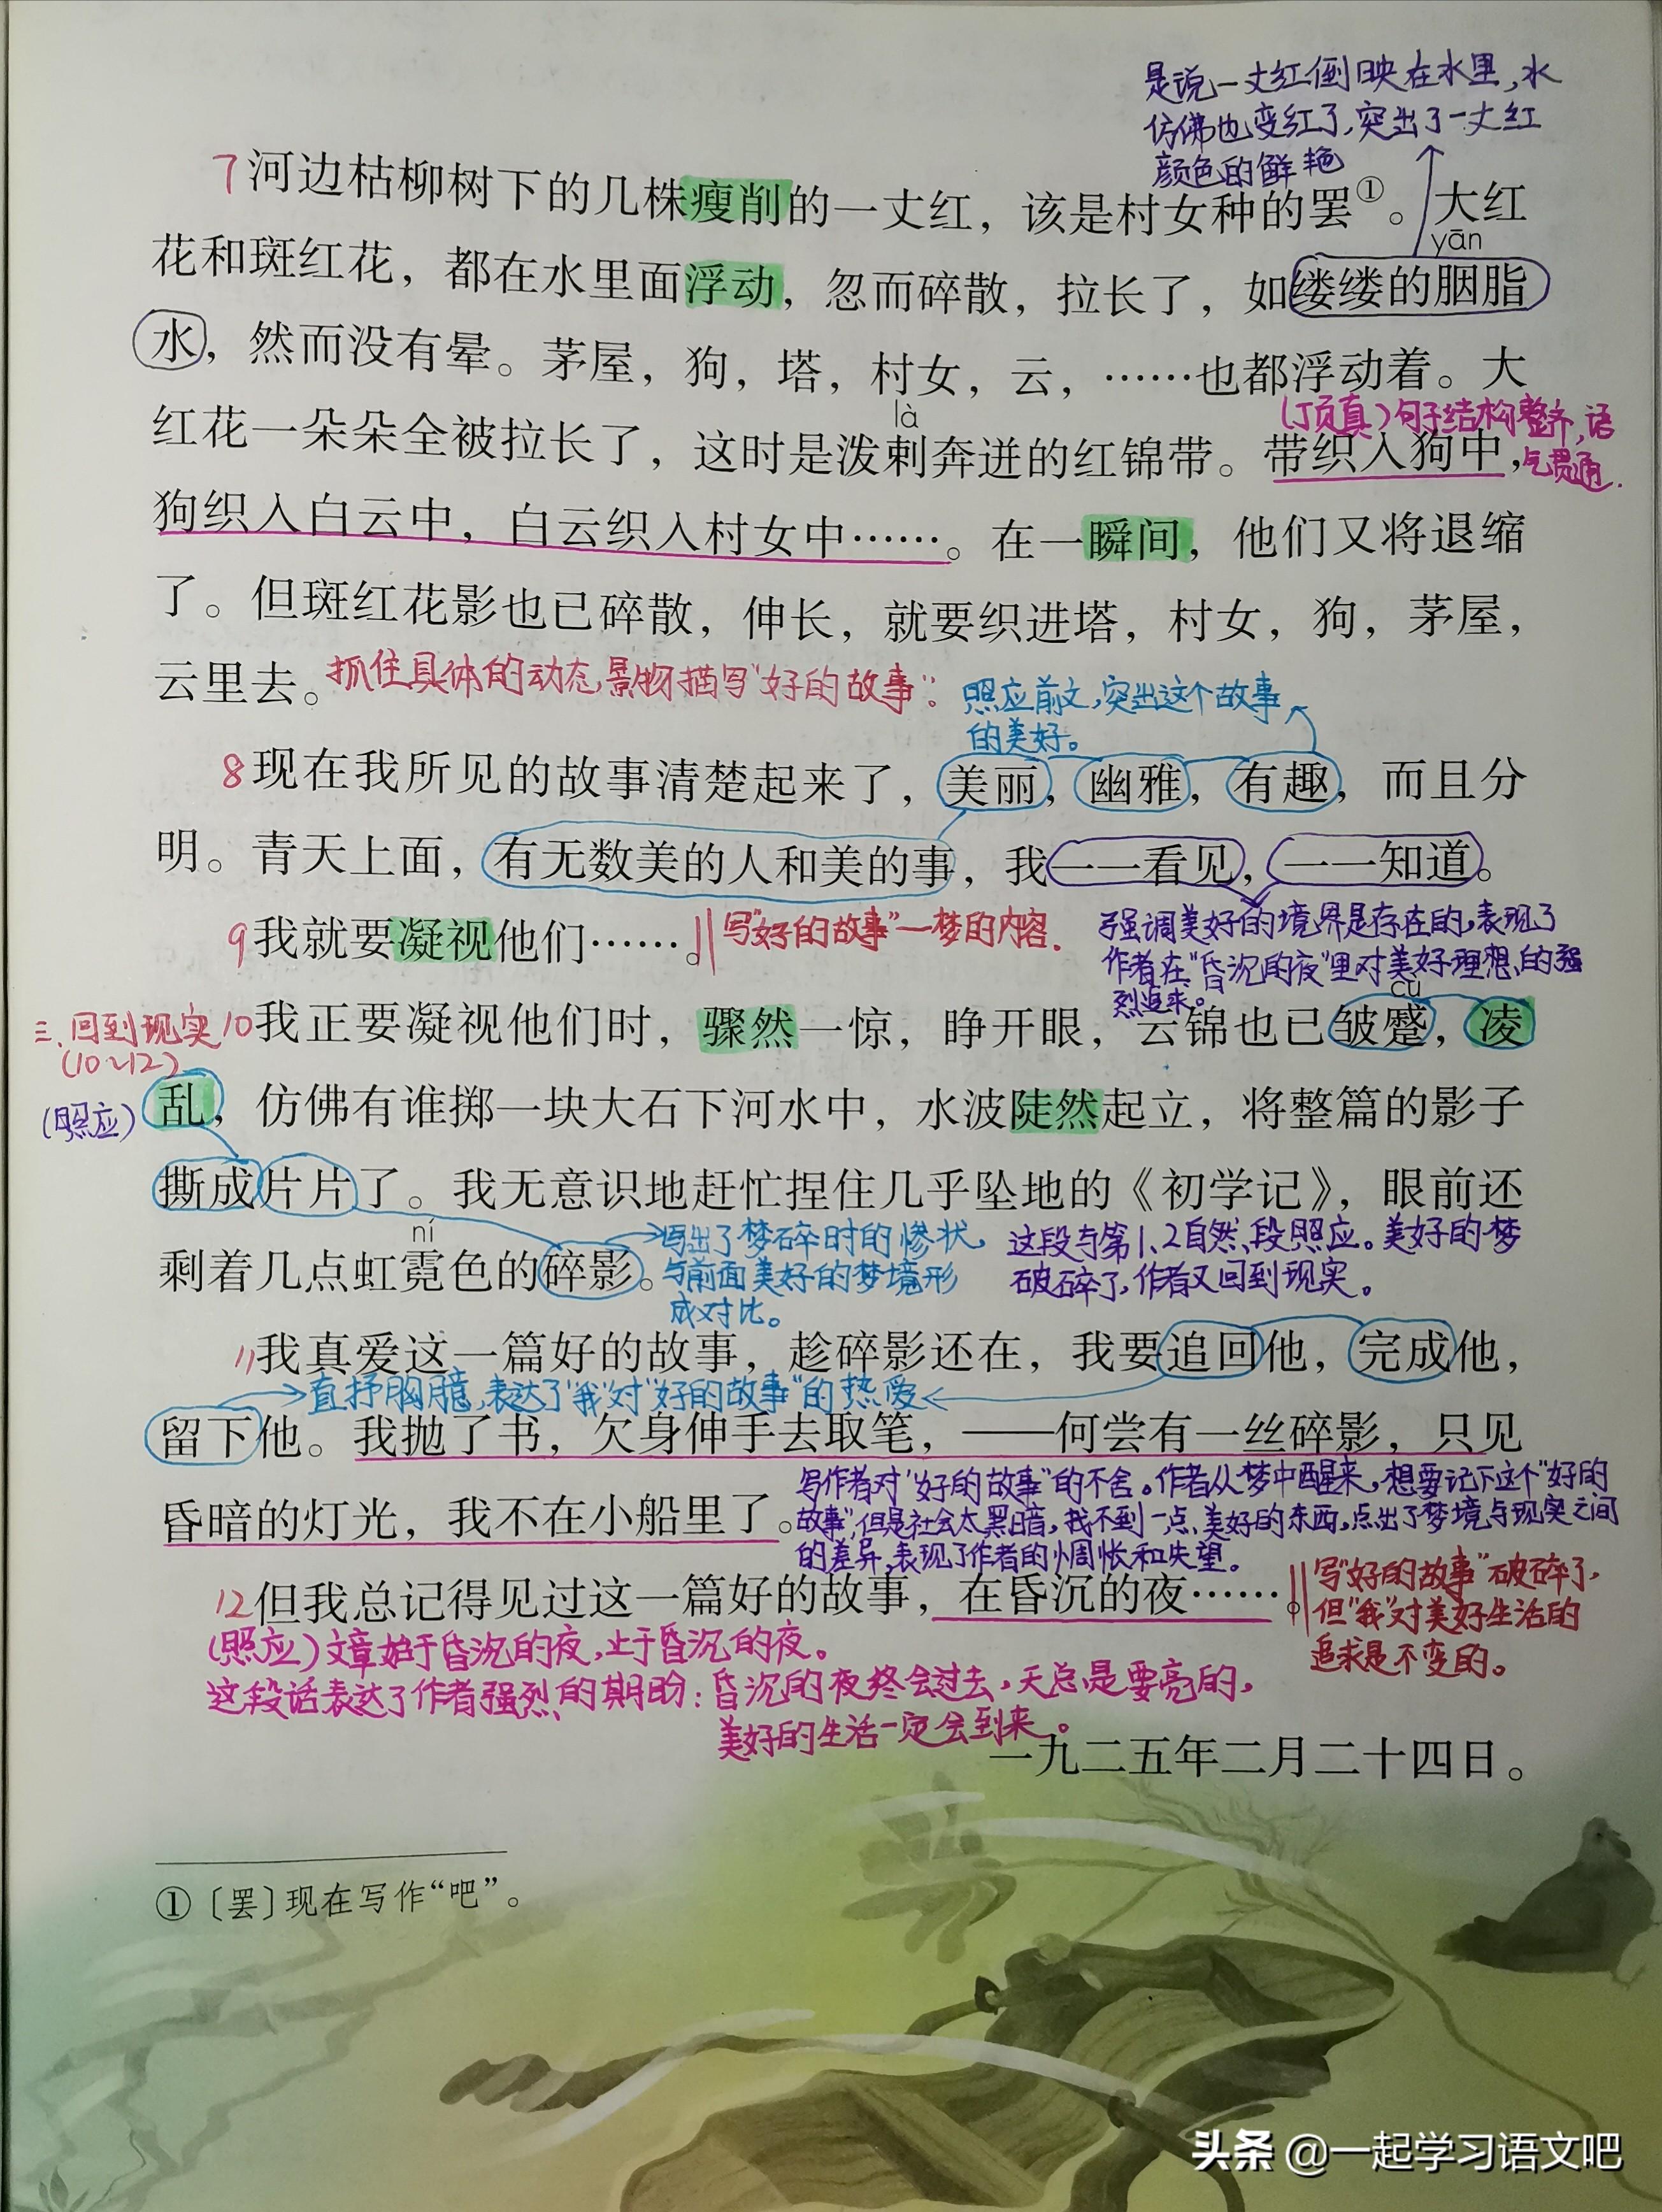 是说一丈红倒映在水里,水
仿佛也变红了,突出了一丈红
颜色的鲜艳
7河边枯柳树下的几株瘦削的一丈红，该是村女种的罢①。大红
yān
花和斑红花，都在水里面浮动，忽而碎散，拉长了，如缕缕的胭脂
水，然而没有晕。茅屋，狗，塔，村女，云，……也都浮动着。大
(顶真)句子结构整齐,语
气贯通.
là
红花一朵朵全被拉长了，这时是泼剌奔迸的红锦带。带织入狗中，
狗织入白云中，白云织入村女中……。在一瞬间，他们又将退缩
了。但斑红花影也已碎散，伸长，就要织进塔，村女，狗，茅屋，
云里去。抓住具体的动态景物描写"好的故事"。
照应前文,突出这个故事
的美好。
8现在我所见的故事清楚起来了，美丽，幽雅，有趣，而且分
明。青天上面，有无数美的人和美的事，我一一看见，一一知道。
9我就要凝视他们……。写"好的故事"—梦的内容.
强调美好的境界是存在的,表现了
作者在"昏沉的夜"里对美好理想的强
烈追求。
cù
三、回到现实
(10~12)
10我正要凝视他们时，骤然一惊，睁开眼，云锦也已皱蹙，凌
(照应)
乱，仿佛有谁掷一块大石下河水中，水波陡然起立，将整篇的影子
撕成片片了。我无意识地赶忙捏住几乎坠地的《初学记》，眼前还
ní
剩着几点虹霓色的碎影。
写出了梦碎时的惨状,
与前面美好的梦境形
成对比。
这段与第1、2自然段照应。美好的梦
破碎了,作者又回到现实。
11我真爱这一篇好的故事，趁碎影还在，我要追回他，完成他，
直抒胸臆,表达了"我"对"好的故事"的热爱
留下他。我抛了书，欠身伸手去取笔，——何尝有一丝碎影，只见
昏暗的灯光，我不在小船里了。
写作者对"好的故事"的不舍。作者从梦中醒来,想要记下这个"好的
故事",但是社会太黑暗,找不到一点美好的东西,点出了梦境与现实之间
的差异,表现了作者的惆怅和失望。
12但我总记得见过这一篇好的故事，在昏沉的夜……。
写"好的故事"破碎了,
但"我"对美好生活的
追求是不变的。
(照应)文章始于昏沉的夜,止于昏沉的夜。
这段话表达了作者强烈的期盼:昏沉的夜终会过去,天总是要亮的,
美好的生活一定会到来。
一九二五年二月二十四日。
①〔罢〕现在写作“吧”。
头条 @一起学习语文吧